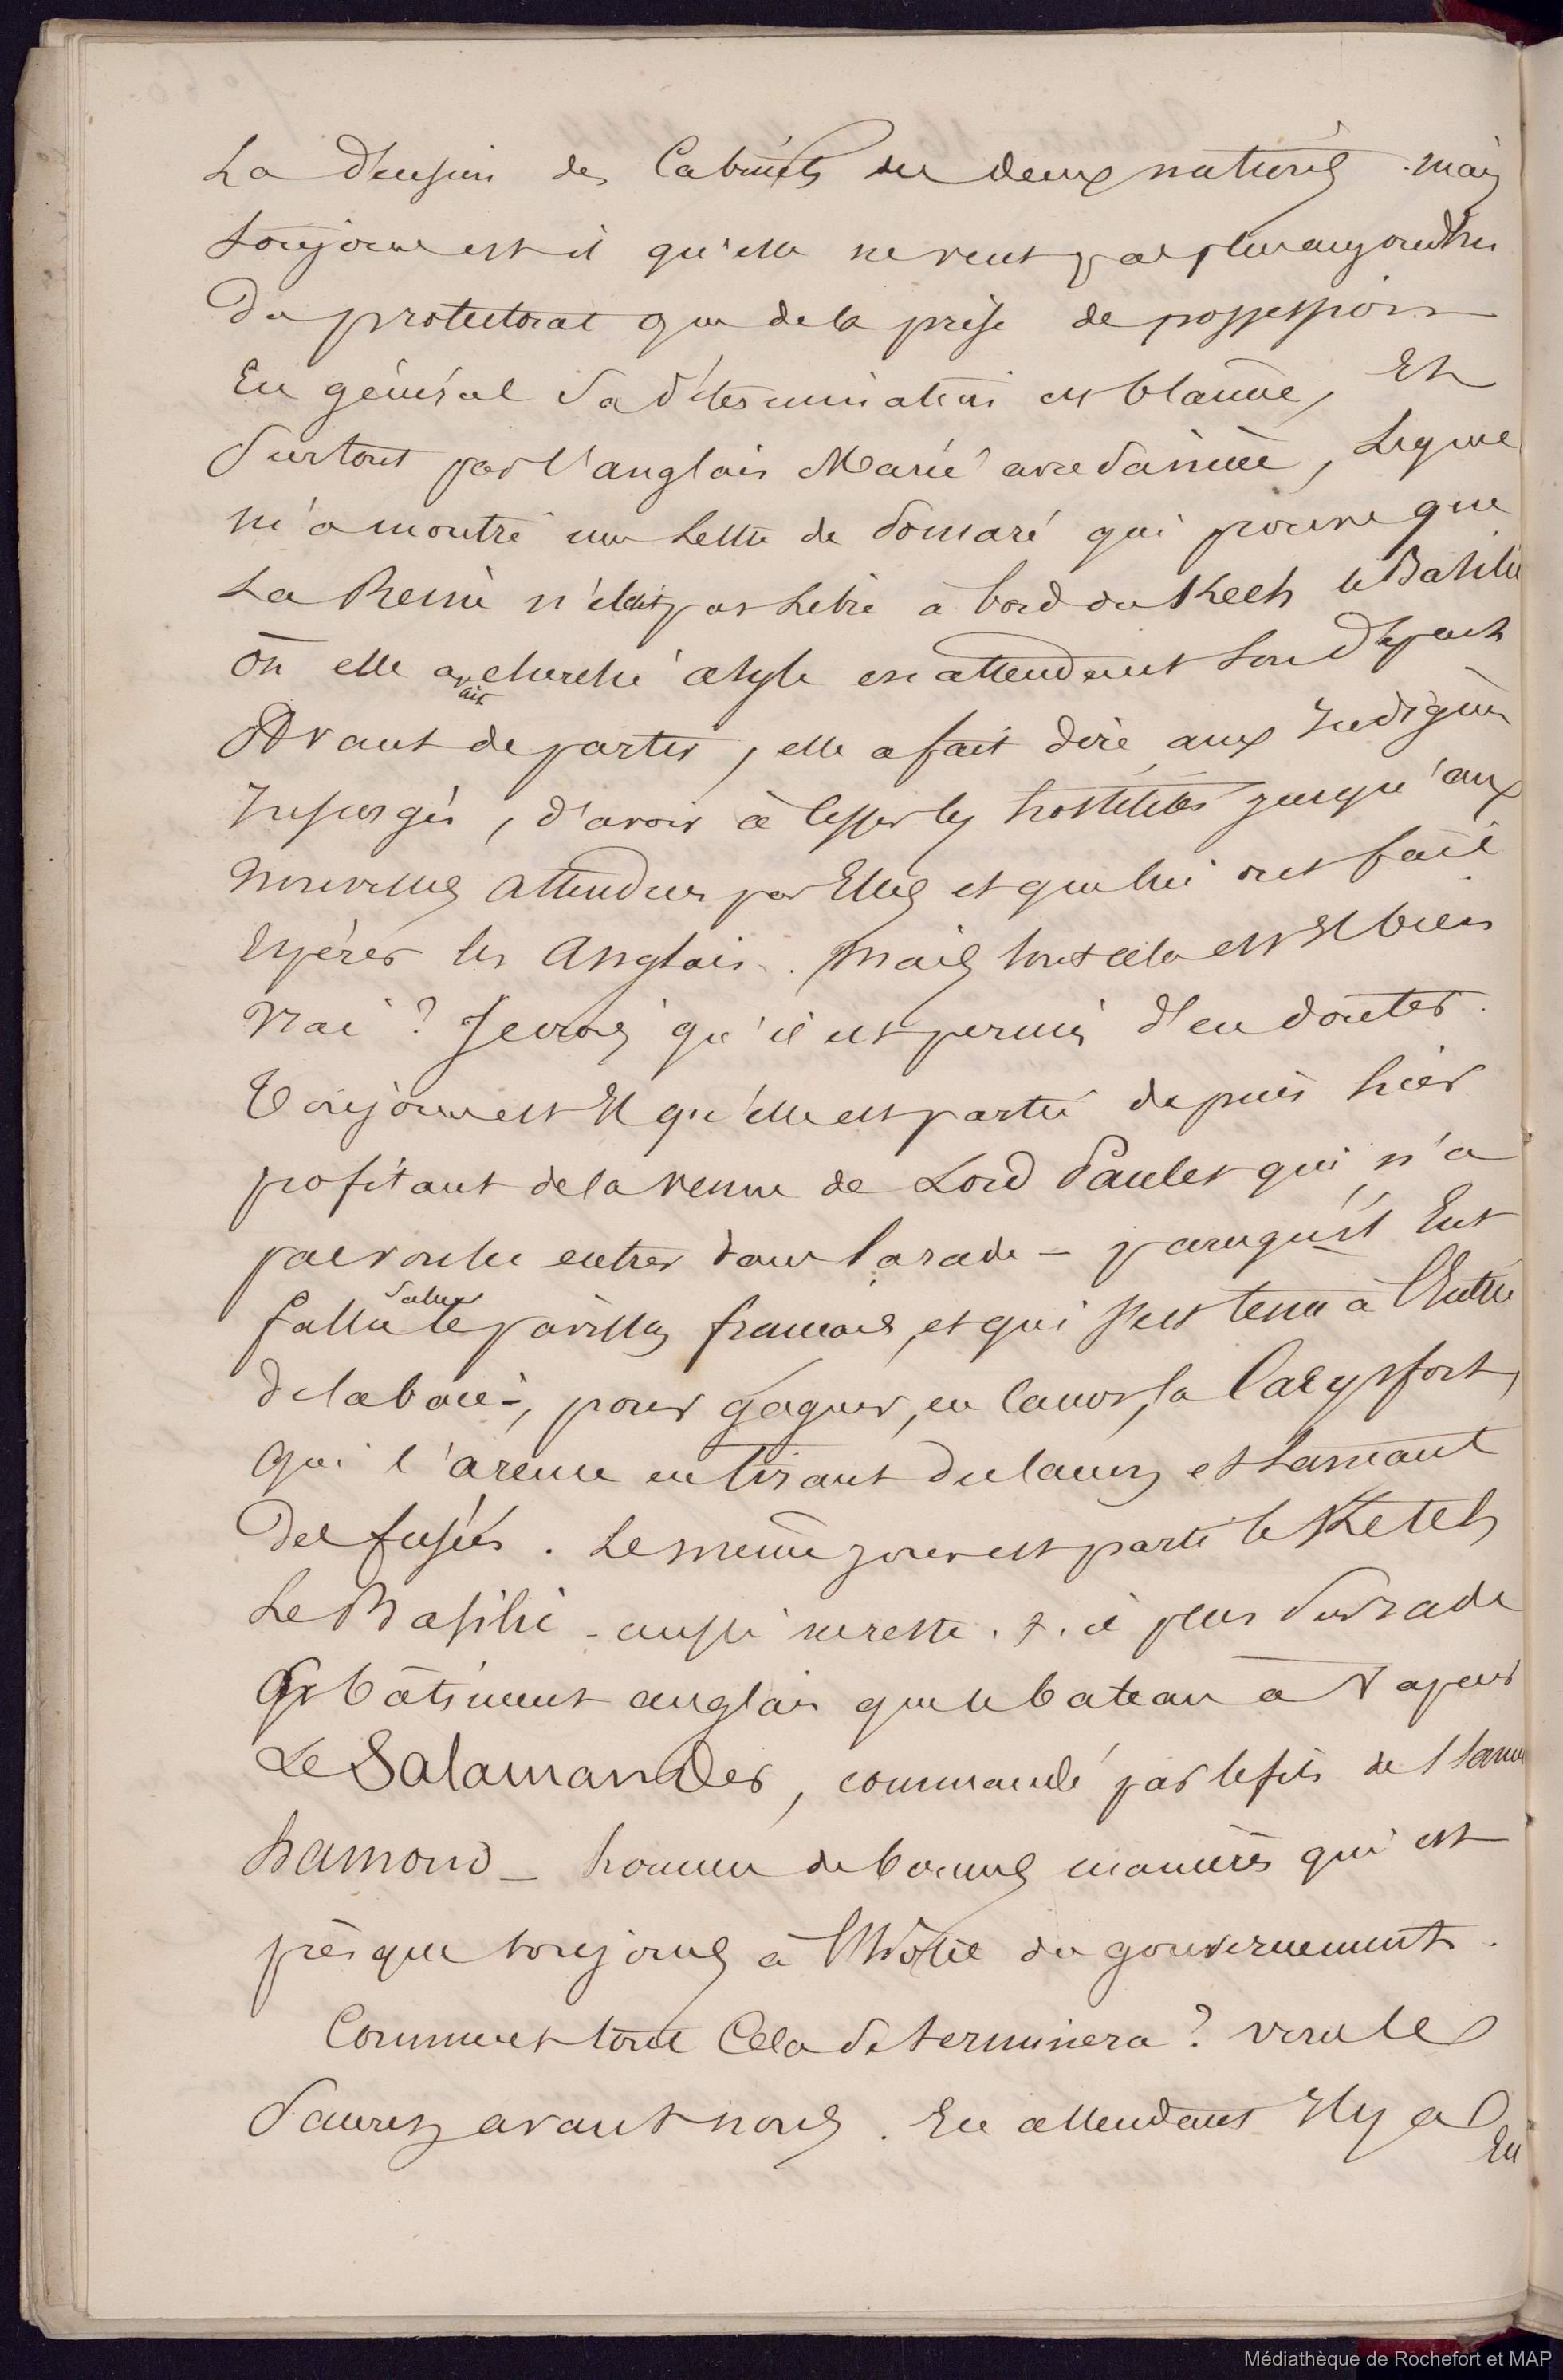 La décision des Cabinets des deux nations. mais
toujours est il qu'elle ne veut pas plus aujourd'hui
du protectorat que de la prise de possession
En général sa détermination est blâmée, Et
surtout par l'anglais Marié avec
m'a montré une lettre de qui prouve que
La Reine n'était pas Libre à bord du Keeth le Basilic
où elle avait cherché asyle en attendant son Départ
Avant de partir, elle a fait dire aux Indigènes
Insurgés, d'avoir à Cesser les hostilités jusqu'aux
nouvelles attendues par Elles et que lui ont fait
Espérer les Anglais. Mais tout cela est Il bien
vrai ? Je crois qu'il est permis d'en douter.
Toujours est Il qu'elle est partie depuis hier
profitant de la venue de Lord Paulet qui n'a
pas voulu entrer dans la rade - parcequ'il Eut
fallu saluer le pavillon français, et qui s'est tenu à l'Entrée
de la baie -, pour gagner, en canot, la Carysfort,
qui l'a reçue en tirant du canon et lançant
Des fusées. Le même jour est parti le Ketch
Le Basilic - aussi ne reste. t. il plus sur rade
de bâtiment anglais que le bateau à Vapeur
Le Salamander, commandé par le fils de
hamond - homme de bonnes manières qui est
presque toujours à l'hôtel du gouvernement.
Comment tout Cela se terminera ? vous le
saurez avant nous. En attendant Il y a
Eu
Médiathèque de Rochefort et MAP